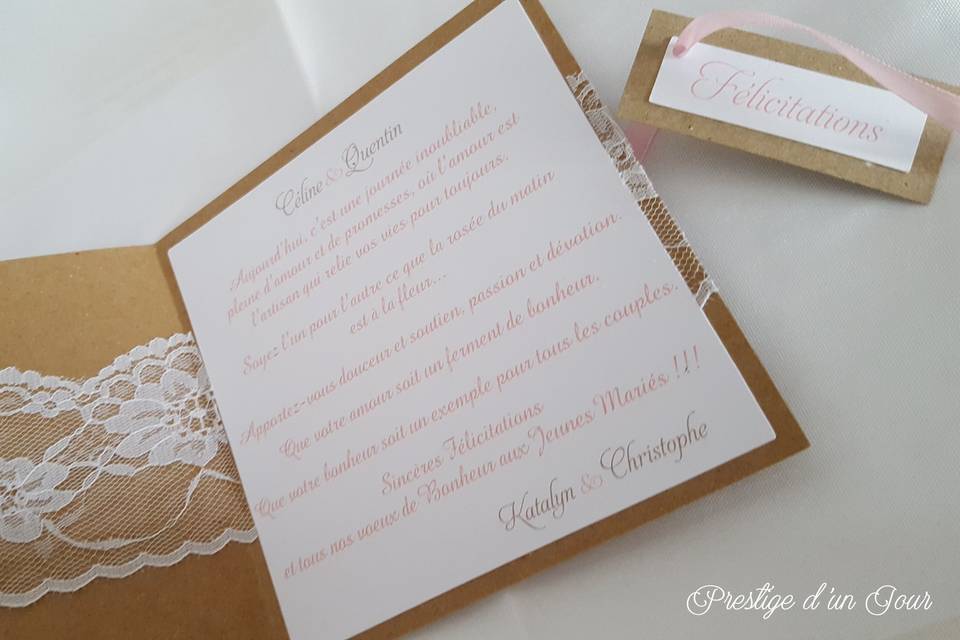 Félicitations
Céline & Quentin
Aujourd'hui, c'est une journée inoubliable,
pleine d'amour et de promesses, où l'amour est
l'artisan qui relie vos vies pour toujours.
Soyez l'un pour l'autre ce que la rosée du matin
est à la fleur...
Apportez-vous douceur et soutien, passion et dévotion.
Que votre amour soit un ferment de bonheur.
Que votre bonheur soit un exemple pour tous les couples.
Sincères Félicitations
et tous nos voeux de Bonheur aux Jeunes Mariés !!!
Katalyn & Christophe
Prestige d'un Jour